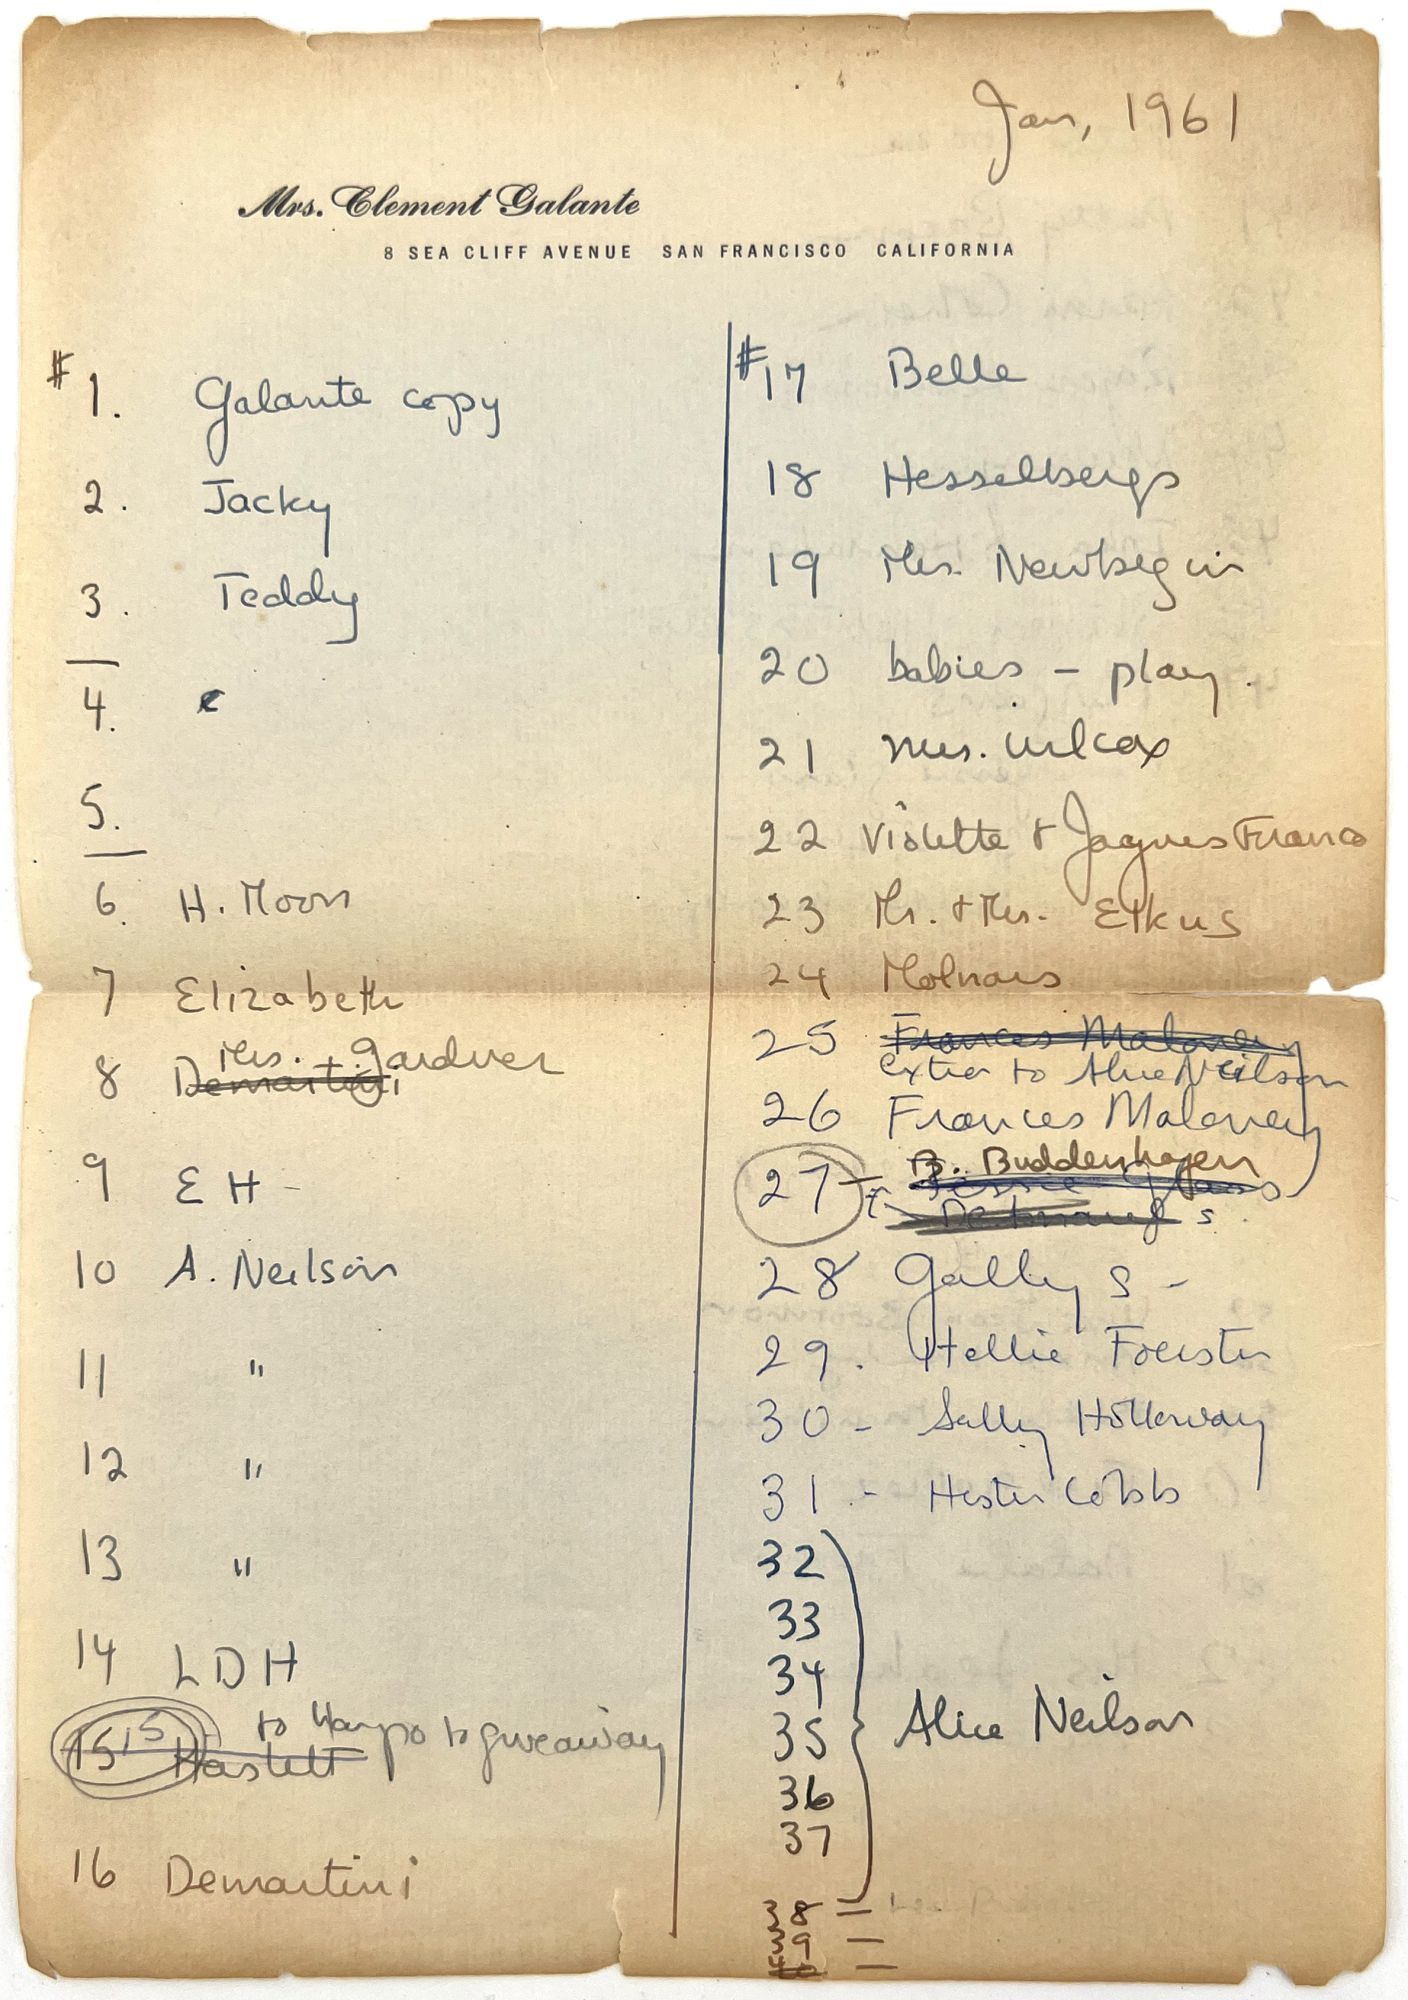 Jan, 1961
Mrs. Clement Galante
8 SEA CLIFF AVENUE SAN FRANCISCO CALIFORNIA
# 1. Galante copy
2. Jacky
3. Teddy
4.
5.
6. H. Moon
7 Elizabeth
Mrs. Gardner
8 Demartini
9 EH -
10 A. Neilson
11 "
12 "
13 "
14 LDH
to to giveaway
15 15 Haslett
16 Demartini
#17 Belle
18 Hesselbergs
19 Mrs. Newbegin
20 babies - play.
21 Mrs. Wilcox
22 Violette & Jaques Franco
23 Mr. & Mrs. Elkus
24 Molnars
25 Frances Maloney
extra to Alice Neilson
26 Frances Maloney
B. Buddenhagen
27 - Jessie Glass
28 Gally S -
29. Hellie Foerster
30 - Sally Holloway
31 - Hester Cobb
32
33
34
35 Alice Neilson
36
37
38
39